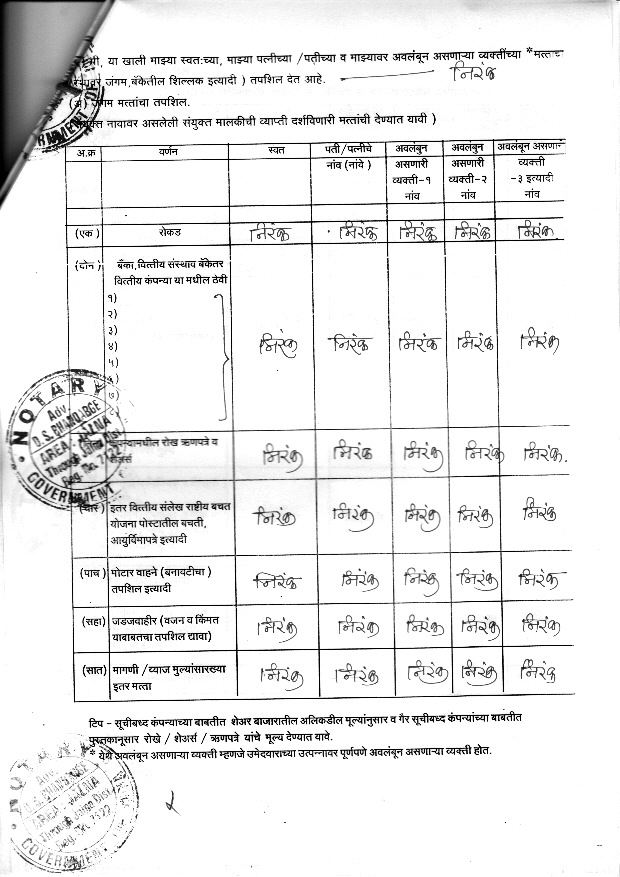 मी, या खाली माझ्या स्वतःच्या, माझ्या पत्नीच्या /पतीच्या व माझ्यावर अवलंबून असणाऱ्या व्यक्तींच्या *मत्तांचा
स्थावर जंगम,बँकेतील शिल्लक इत्यादी ) तपशिल देत आहे. निरंक
(अ) जंगम मत्तांचा तपशिल.
संयुक्त नावावर असलेली संयुक्त मालकीची व्याप्ती दर्शविणारी मत्तांची देण्यात यावी )
अ.क्र वर्णन स्वत पती/पत्नीचे अवलंबुन अवलंबुन अवलंबुन असणारी
नांव (नांवे ) असणारी असणारी व्यक्ती
व्यक्ती-१ व्यक्ती-२ -३ इत्यादी
नांव नांव नांव
(एक ) रोकड निरंक निरंक निरंक निरंक निरंक
(दोन ) बँका,वित्तीय संस्थाव बँकेतर
वित्तीय कंपन्या या मधील ठेवी
१)
२)
३)
४) निरंक निरंक निरंक निरंक निरंक
५)
७)
NOTARY
Adv.
D.S. GHANDARGE
AREA - JALNA
Through Jalna Dist.
Reg. No. 7522
GOVERNMENT
कंपन्यामधील रोख ऋणपत्रे व
शेअर्स निरंक निरंक निरंक निरंक निरंक.
(चार ) इतर वित्तीय संलेख राष्टीय बचत
योजना पोस्टातील बचती, निरंक निरंक निरंक निरंक निरंक
आयुर्विमापत्रे इत्यादी
(पाच ) मोटार वाहने (बनायटीचा )
तपशिल इत्यादी निरंक निरंक निरंक निरंक निरंक
(सहा) जडजवाहीर (वजन व किंमत
याबाबतचा तपशिल द्यावा) निरंक निरंक निरंक निरंक निरंक
(सात) मागणी /व्याज मुल्यांसारख्या
इतर मत्ता निरंक निरंक निरंक निरंक निरंक
टिप - सूचीबध्द कंपन्याच्या बाबतीत शेअर बाजारातील अलिकडील मूल्यांनुसार व गैर सूचीबध्द कंपन्यांच्या बाबतीत
पुस्तकानूसार रोखे / शेअर्स / ऋणपत्रे यांचे मूल्य देण्यात यावे.
* येथे अवलंबून असणाऱ्या व्यक्ती म्हणजे उमेदवाराच्या उत्पन्नावर पूर्णपणे अवलंबून असणाऱ्या व्यक्ती होत.
NOTARY
Adv.
AREA - JALNA
Through Jalna Dist.
Reg. No. 7522
GOVERNMENT